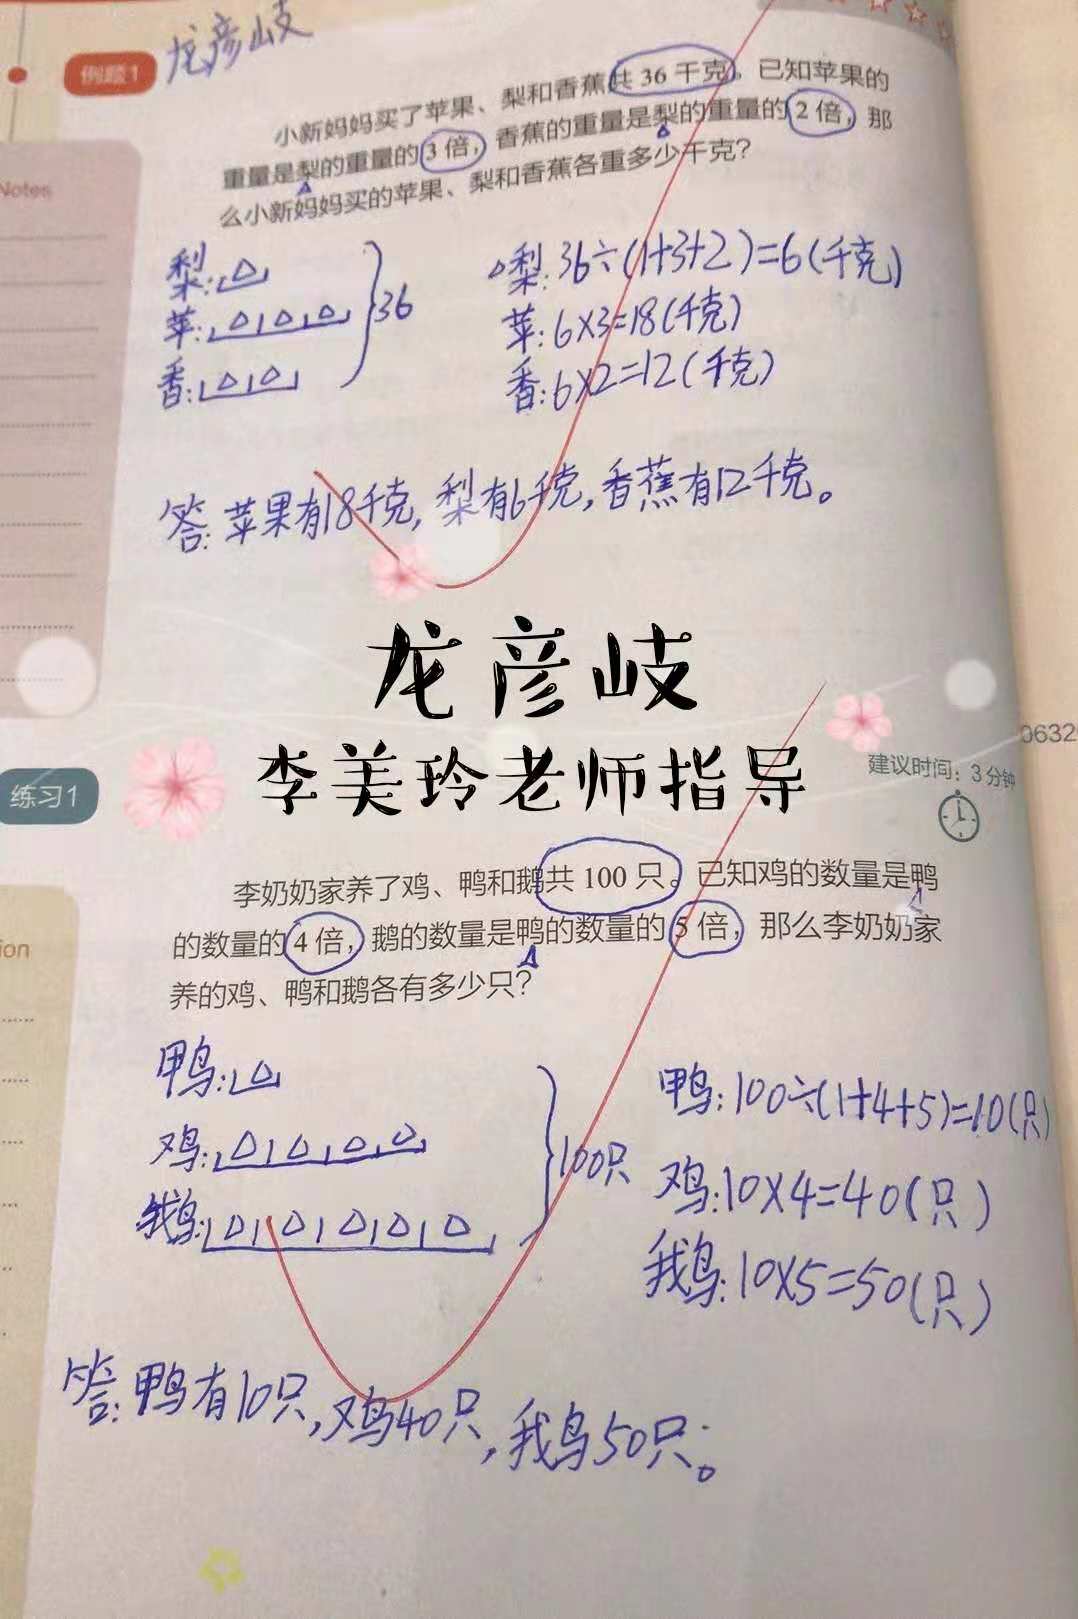 龙彦岐
例题1
小新妈妈买了苹果、梨和香蕉共 36 千克，已知苹果的
重量是梨的重量的 3 倍，香蕉的重量是梨的重量的 2 倍，那
么小新妈妈买的苹果、梨和香蕉各重多少千克？
Notes
梨: 36÷(1+3+2)=6(千克)
梨:
苹: 36
苹: 6×3=18(千克)
香:
香: 6×2=12(千克)
答: 苹果有18千克, 梨有6千克, 香蕉有12千克。
龙彦岐
李美玲老师指导
0632
练习1
建议时间：3 分钟
李奶奶家养了鸡、鸭和鹅共 100 只。已知鸡的数量是鸭
的数量的 4 倍，鹅的数量是鸭的数量的 5 倍，那么李奶奶家
养的鸡、鸭和鹅各有多少只？
ion
鸭:
鸭: 100÷(1+4+5)=10(只)
鸡: 100只
鸡: 10×4=40(只)
鹅:
鹅: 10×5=50(只)
答: 鸭有10只, 鸡40只, 鹅50只。